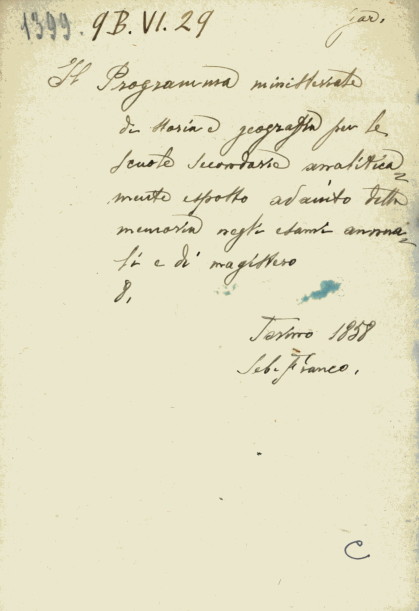 1399. 9 B. VI. 29
Il Programma ministeriale
di storia e geografia per le
scuole secondarie analitica=
mente esposto ad aiuto della
memoria negli esami annua=
li e di magistero
8.
Torino 1858
Seb. Franco.
C